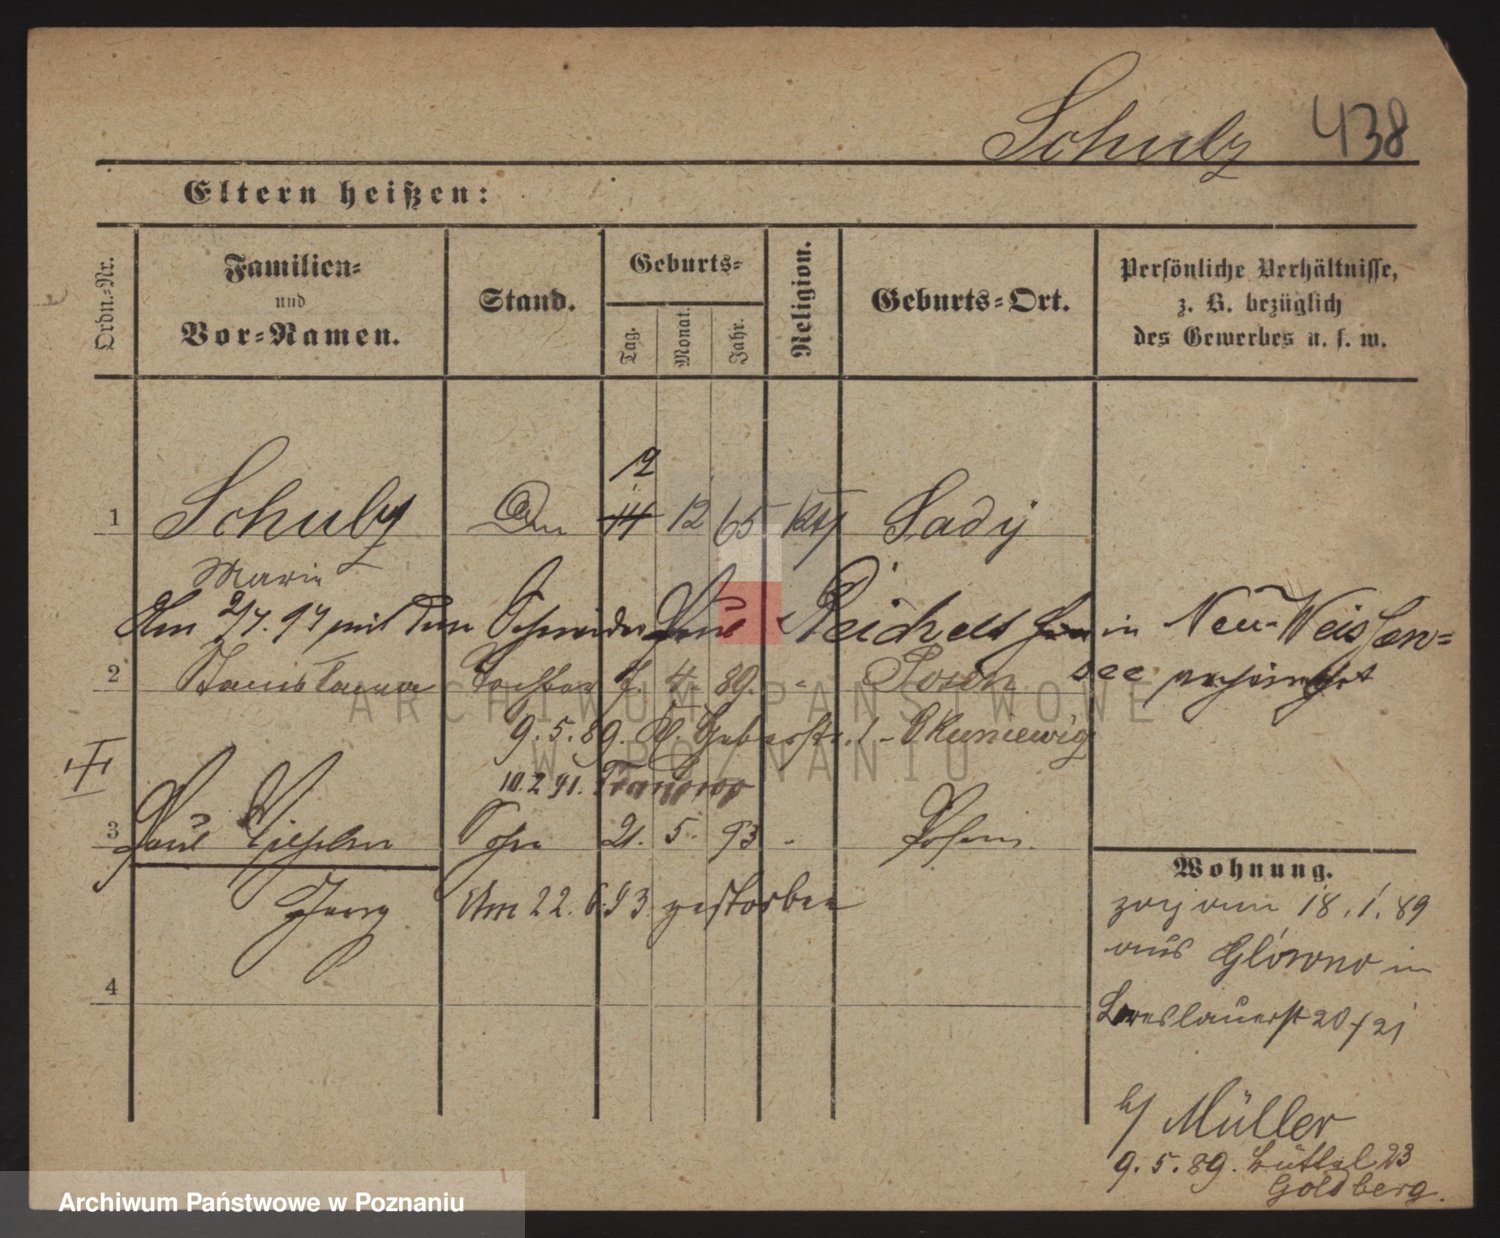 Schulz 438
Eltern heißen:
Ordn.-Nr.
Familien-
und
Vor-Namen.
Stand.
Geburts-
Tag.
Monat.
Jahr.
Religion.
Geburts-Ort.
Persönliche Verhältnisse,
z. B. bezüglich
des Gewerbes u. s. w.
12
1 Schulz 14 12 65 kth Sady
Marie
Am 2/7. 97 mit dem Schneider Paul Reichelt in Neu-Weissen=
see verheirathet
2 Stanislawa Tochter 7. 4. 89. - Posen
9. 5. 89.
10. 2. 91.
3 Paul Sohn 21. 5. 93 - Posen
Georg Am 22. 6. 93 gestorben
4
Wohnung.
zog am 18. 1. 89
aus Glówno in
Breslauerstr 20/21
b/ Müller
9. 5. 89. Büttel 23
Goldberg.
ARCHIWUM PAŃSTWOWE
W POZNANIU
Archiwum Państwowe w Poznaniu